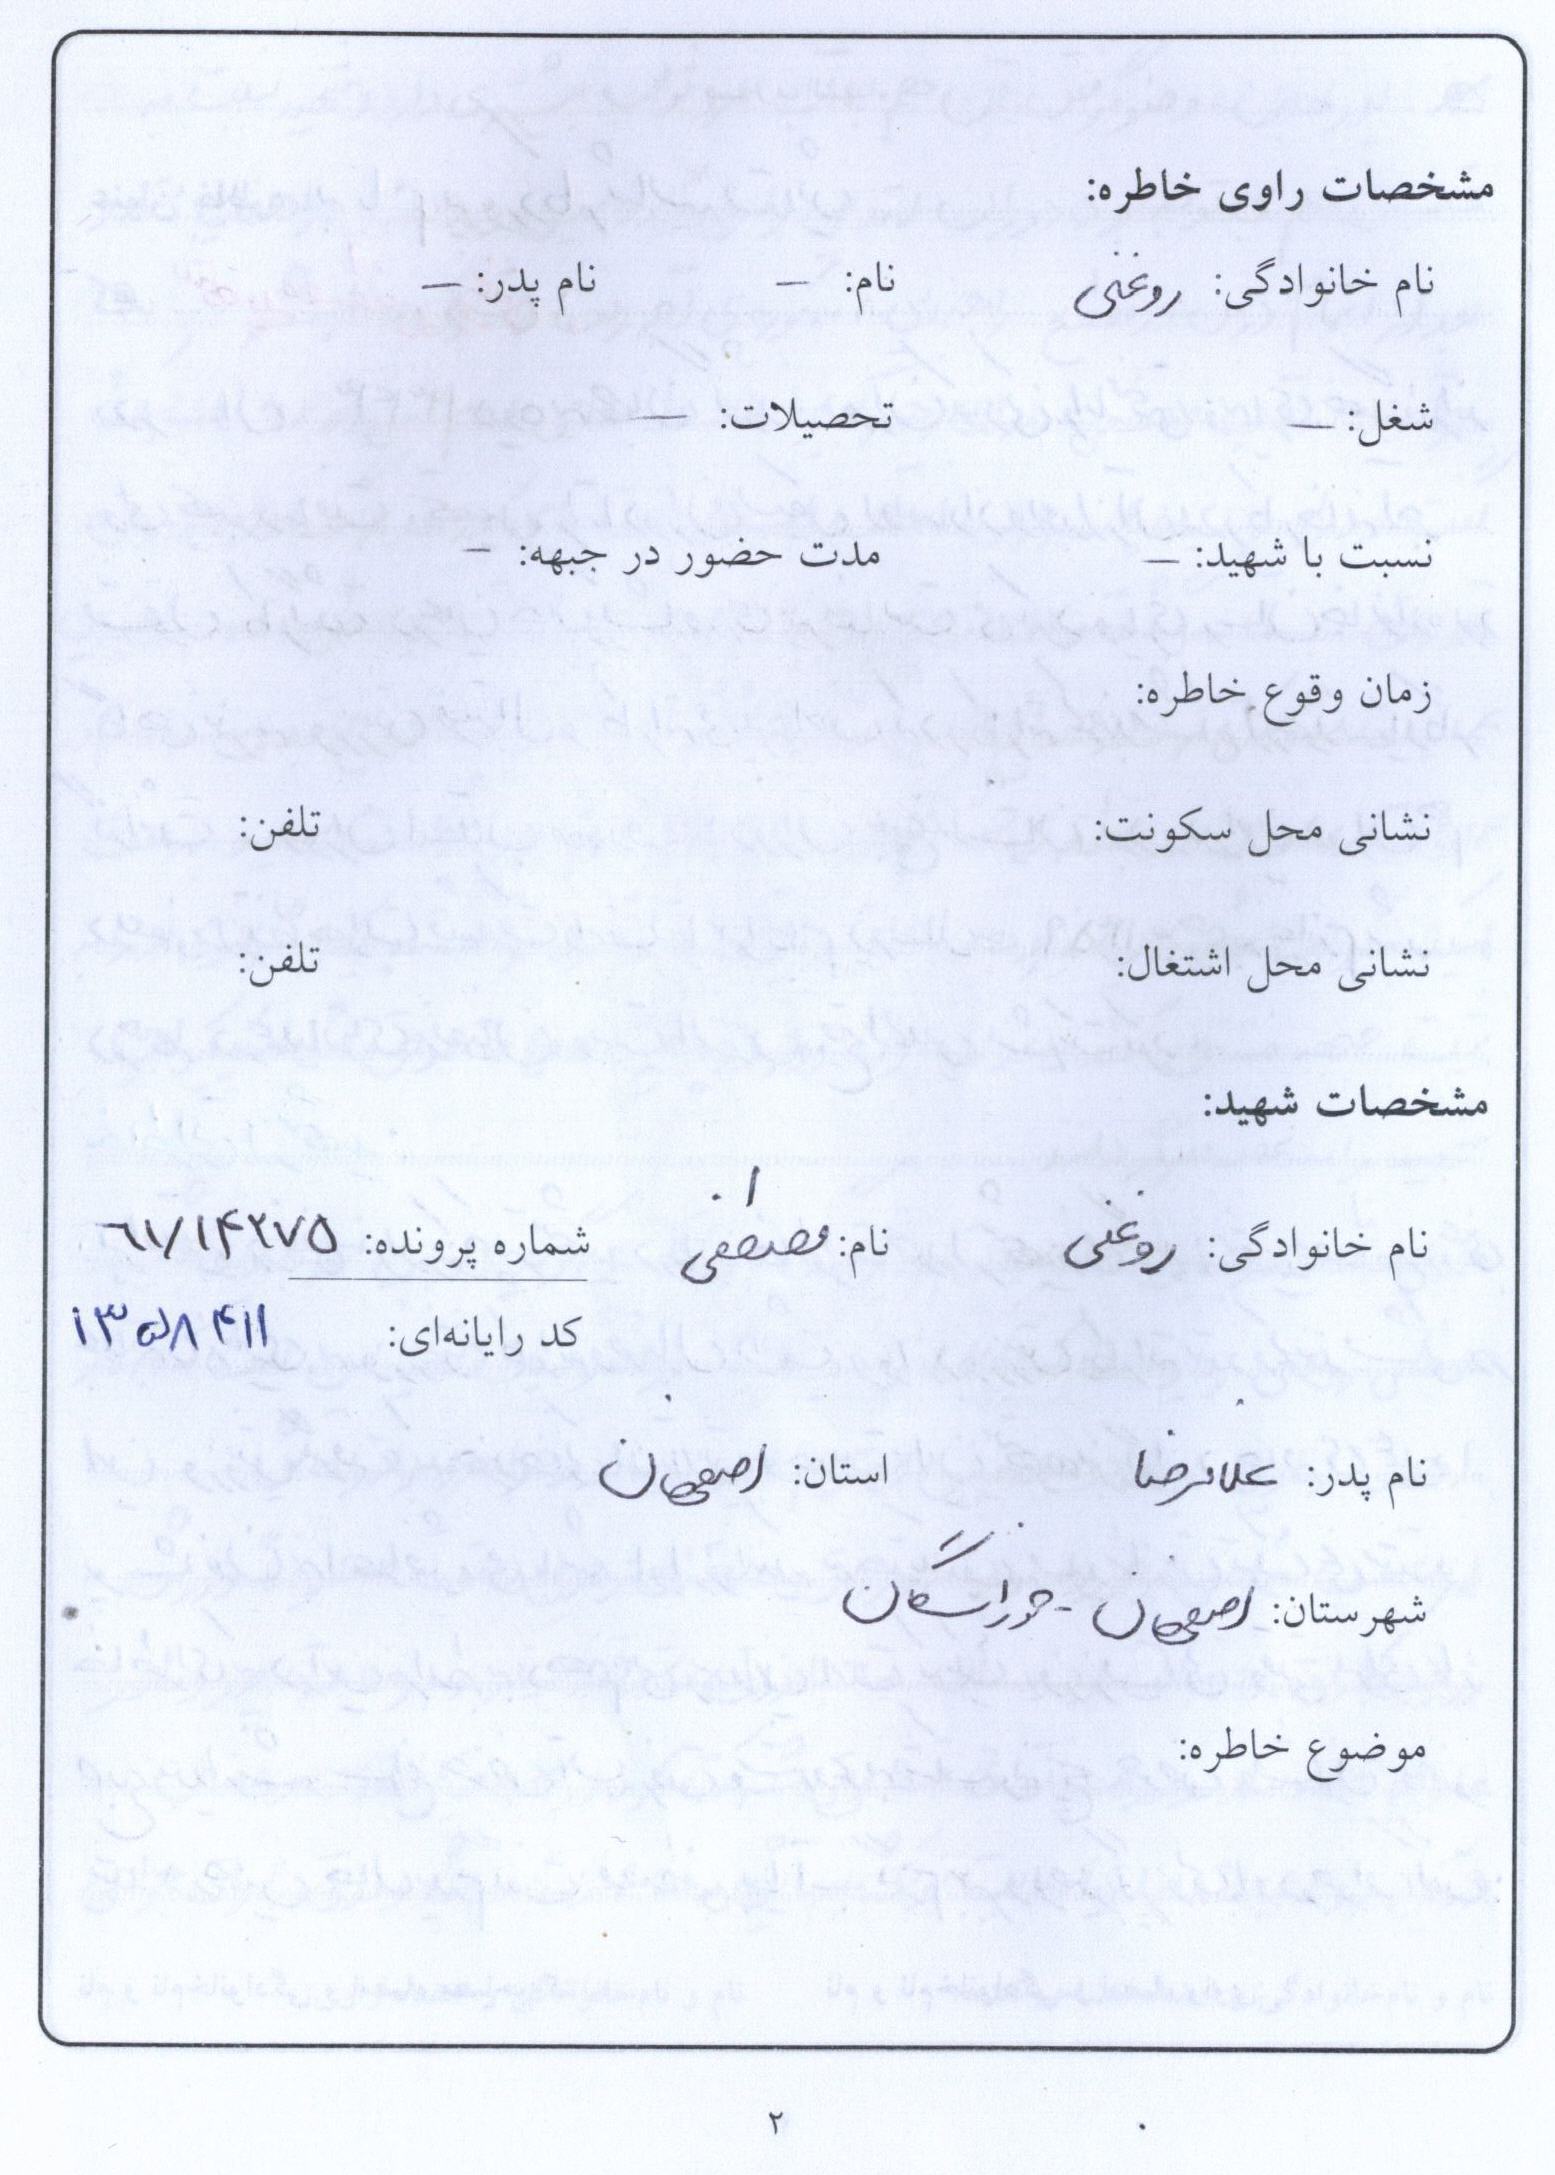 مشخصات راوی خاطره:
نام خانوادگی: روغنی نام: — نام پدر: —
شغل: — تحصیلات: —
نسبت با شهید: — مدت حضور در جبهه: —
زمان وقوع خاطره:
نشانی محل سکونت: تلفن:
نشانی محل اشتغال: تلفن:
مشخصات شهید:
نام خانوادگی: روغنی نام: مصطفی شماره پرونده: ۶۱/۱۴۲۷۵
کد رایانه‌ای: ۱۳۵۸۴۱۱
نام پدر: غلامرضا استان: اصفهان
شهرستان: اصفهان - خوراسگان
موضوع خاطره:
۲